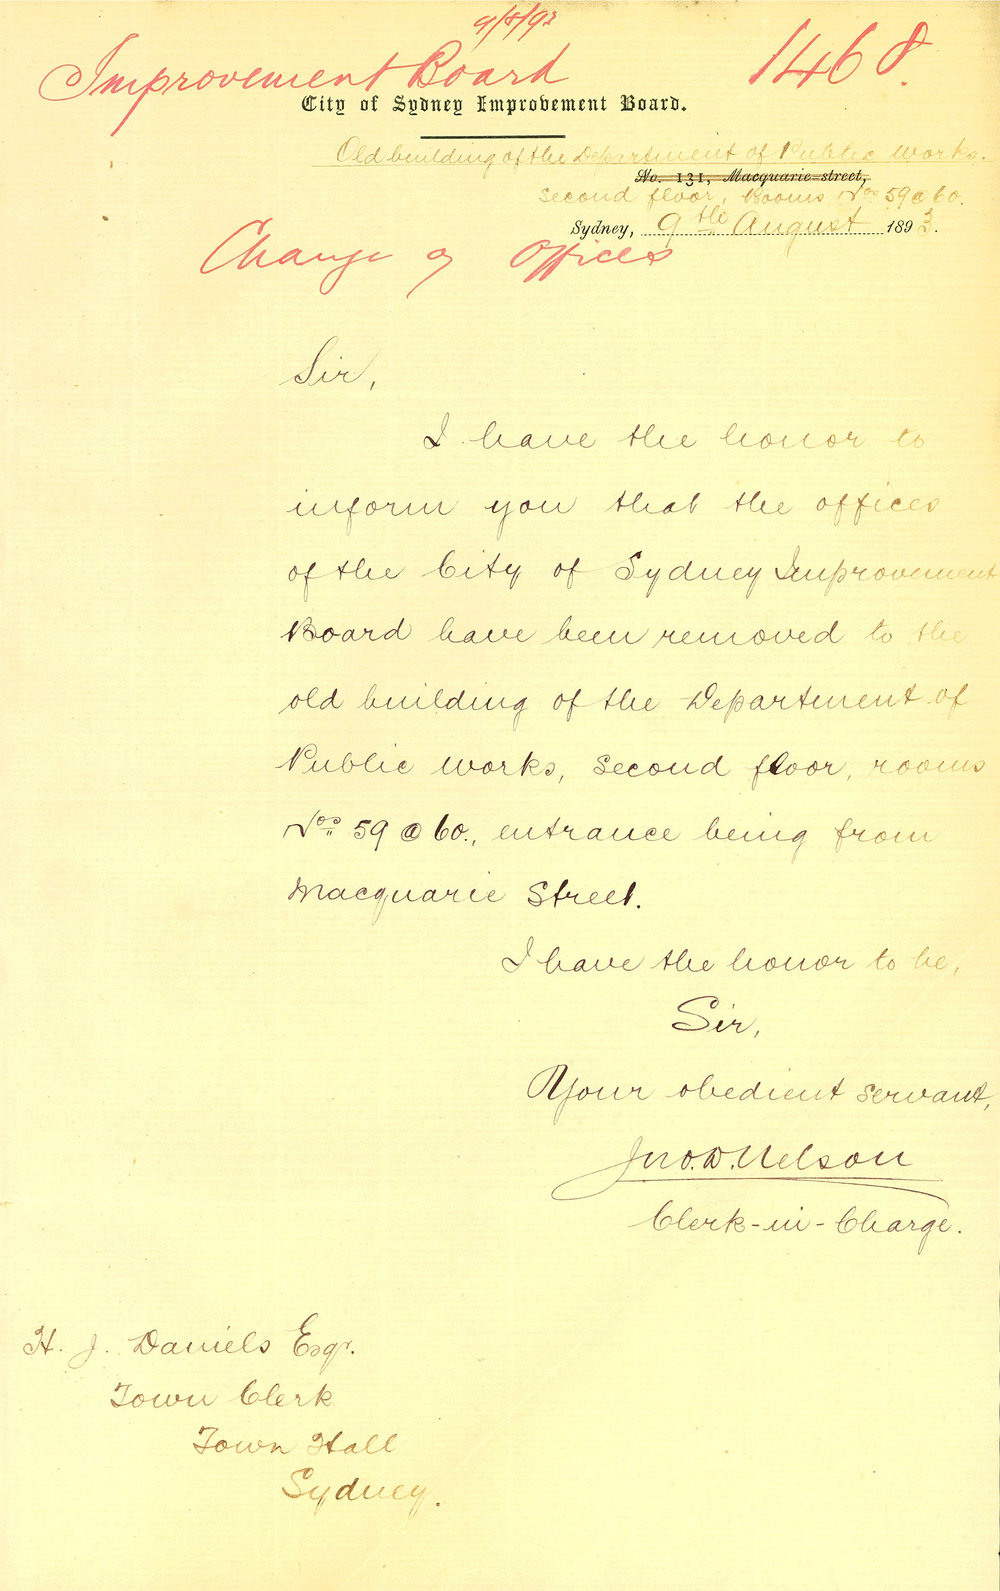 9/8/93
Improvement Board 1468.
City of Sydney Improvement Board.
Old building of the Department of Public Works.
No. 131, Macquarie-street,
Second floor, Rooms Nos 59 @ 60.
Sydney, 9th August 1893.
Change of Offices
Sir,
I have the honor to
inform you that the offices
of the City of Sydney Improvement
Board have been removed to the
old building of the Department of
Public Works, second floor, rooms
Nos 59 @ 60., entrance being from
Macquarie Street.
I have the honor to be,
Sir,
Your obedient servant,
Jno. D. Nelson
Clerk-in-Charge.
H. J. Daniels Esqr.
Town Clerk
Town Hall
Sydney.